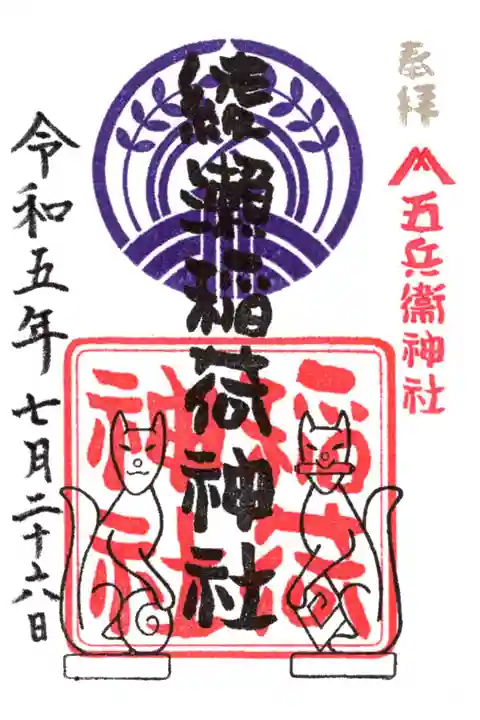 奉拝
五兵衞神社
綾瀬稲荷神社
稲荷神社
令和五年七月二十六日